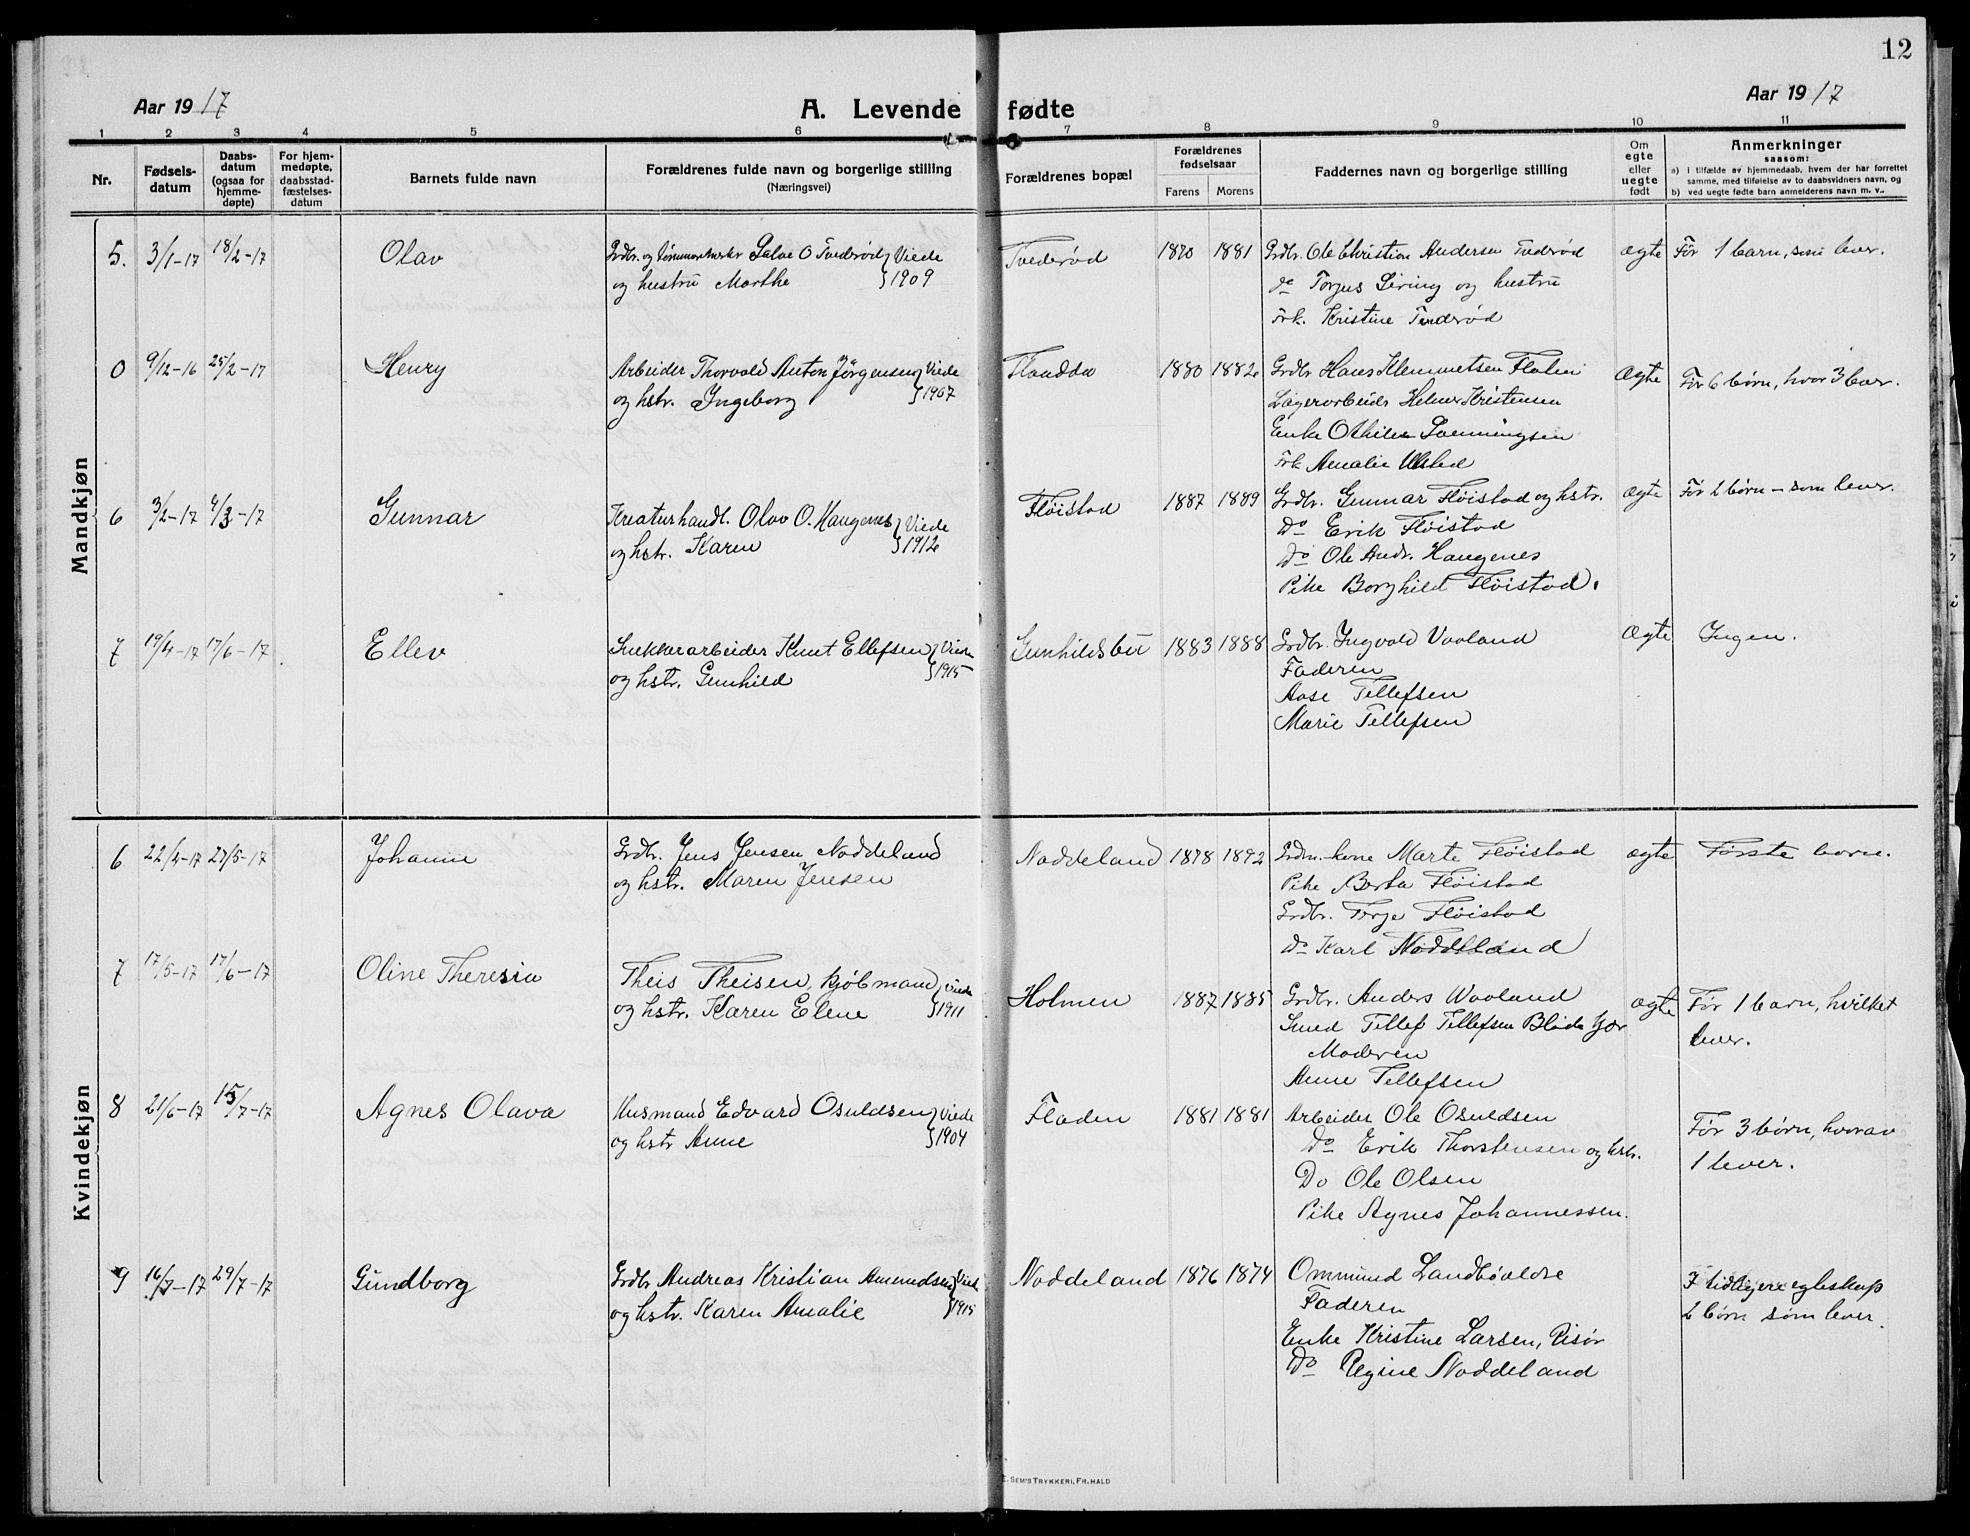 12
Aar 1917
A. Levende fødte
Aar 1917
1 2 3 4 5 6 7 8 9 10 11
Nr.
Fødsels-
datum
Daabs-
datum
(ogsaa for
hjemme-
døpte)
For hjem-
medøpte,
daabsstad-
fæstelses-
datum
Barnets fulde navn
Forældrenes fulde navn og borgerlige stilling
(Næringsvei)
Forældrenes bopæl
Forældrenes
fødselsaar
Farens Morens
Faddernes navn og borgerlige stilling
Om
egte
eller
uegte
født
Anmerkninger
saasom:
a) i tilfælde av hjemmedaab, hvem der har forrettet
samme, med tilføielse av to daabsvidners navn, og
b) ved uegte fødte barn anmelderens navn m. v..
Mandkjøn
5. 3/1-17 18/2-17 Olav
Grdbr. og tømmermerker Salve O Tvederød Viede
og hustru Marthe 1909
Tvederød 1870 1881
Grdbr. Ole Christian Andersen Tvederød
do Torjus Siring og hustru
Frk. Kristine Tvederød
ægte
Før 1 barn, som lever.
0 9/12-16 25/2-17 Henry
Arbeider Thorvald Anton Jørgensen Viede
og hstr. Ingeborg 1907
Flaadda 1880 1882
Grdbr Hans Klemmetsen Flaten
Lagerarbeider Helmer Kristensen
Enke Othilie Svenningsen
Frk Amalie Ulstad
ægte
Før 6 børn, hvor 3 lever.
6 3/2-17 4/3-17 Gunnar
Kreaturhandl. Olav O. Haugenes Viede
og hstr. Karen 1912
Fløistad 1887 1889
Grdbr. Gunnar Fløistad og hstr.
Do Erik Fløistad
Do Ole Andr. Haugenes
Pike Borghild Fløistad.
ægte
Før 2 børn - som lever.
7 19/4-17 17/6-17 Ellev
Snekkerarbeider Knut Ellefsen Viede
og hstr. Gunhild 1915
Gunhildsbu 1883 1888
Grdbr. Ingvald Vaaland
Faderen
Aase Tellefsen
Marie Tellefsen
ægte
Ingen.
Kvindekjøn
6 22/4-17 27/5-17 Johanne
Grdbr. Jens Jensen Noddeland
og hstr. Maren Jensen
Noddeland 1878 1892
Grdm. kone Marte Fløistad
Pike Berta Fløistad
Grdbr. Terje Fløistad
do Karl Noddeland
ægte
Første barn.
7 17/5-17 17/6-17 Oline Theresia
Theis Theisen, kjøbmand Viede
og hstr. Karen Elene 1911
Holmen 1887 1885
Grdbr. Anders Vaaland
Smed Tellef Tellefsen
Moderen
Anne Tellefsen
ægte
Før 1 barn, hvilket
lever.
8 21/6-17 15/7-17 Agnes Olava
Husmand Edvard Osuldsen Viede
og hstr Anne 1904
Fladen 1881 1881
Arbeider Ole Osuldsen
Do Erik Thorstensen og hstr.
Do Ole Olsen
Pike Agnes Johannessen.
Før 3 børn, hvorav
1 lever.
9 16/7-17 29/7-17 Gundborg
Grdbr Andreas Kristian Amundsen Viede
og hstr. Karen Amalie 1915
Noddeland 1876 1874
Ommund
Faderen
Enke Kristine Larsen, Risør
Do Regine Noddeland
I tidligere egteskap
2 børn som lever.
E. SEM'S TRYKKERI, FR.HALD